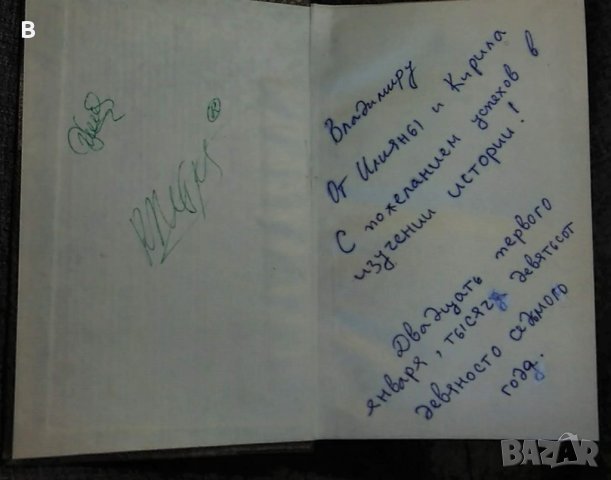 B
Владимиру
От Илияны и Кирила
С пожеланием успехов в
изучении истории!
Двадцать первого
января, тысяча девятьсот
девяносто седьмого
года.
BAZAR